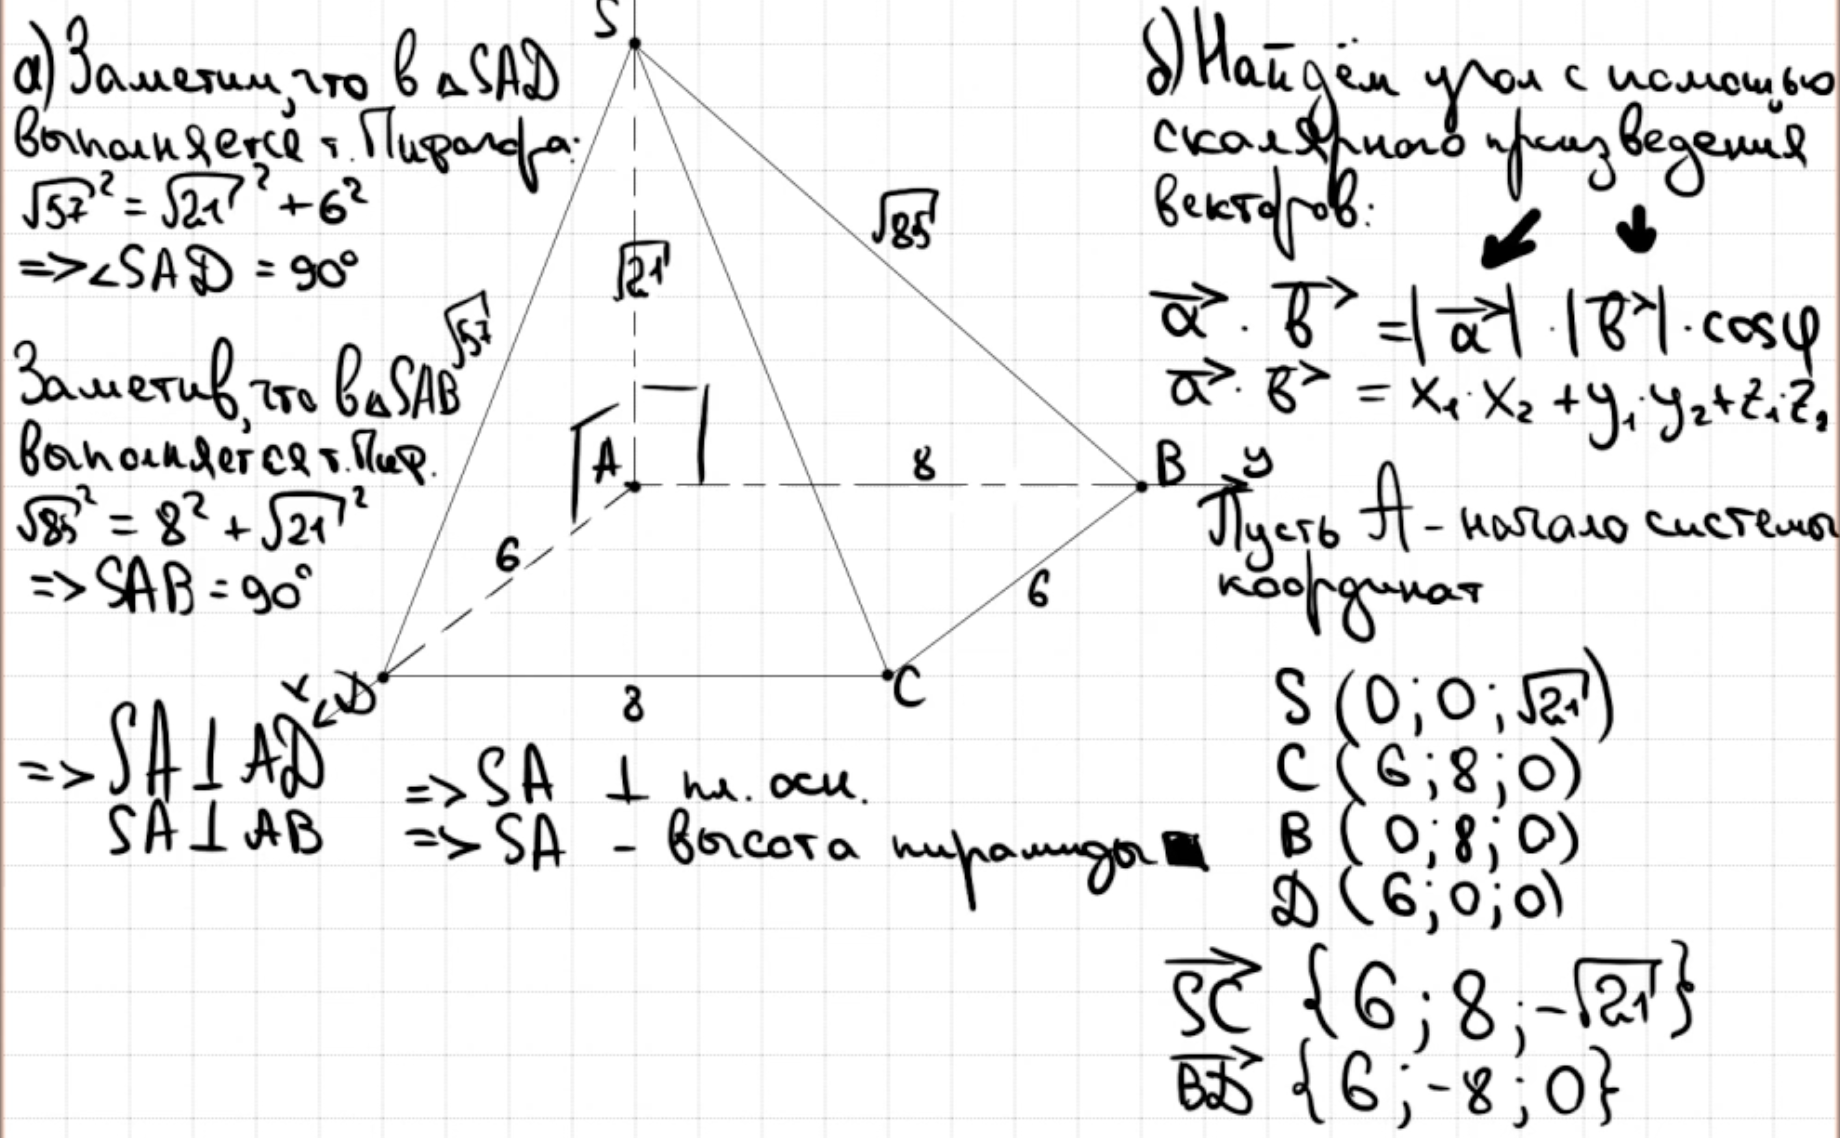 а) Заметим, что в △SAD
выполняется т. Пифагора:
√57² = √21² + 6²
=> ∠SAD = 90°
Заметив, что в △SAB
выполняется т. Пиф.
√85² = 8² + √21²
=> SAB = 90°
=> SA ⊥ AD
SA ⊥ AB
=> SA ⊥ пл. осн.
=> SA - высота пирамиды ■
S
√85
√21
√57
A
8
B
y
6
6
x
D
C
8
б) Найдём угол с помощью
скалярного произведения
векторов:
a · b = |a| · |b| · cosφ
a · b = x₁ · x₂ + y₁ · y₂ + z₁ · z₂
Пусть A - начало системы
координат
S (0; 0; √21)
C (6; 8; 0)
B (0; 8; 0)
D (6; 0; 0)
SC {6; 8; -√21}
BD {6; -8; 0}